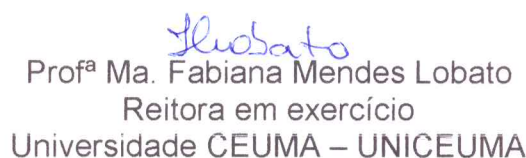 FLobato
Profª Ma. Fabiana Mendes Lobato
Reitora em exercício
Universidade CEUMA – UNICEUMA